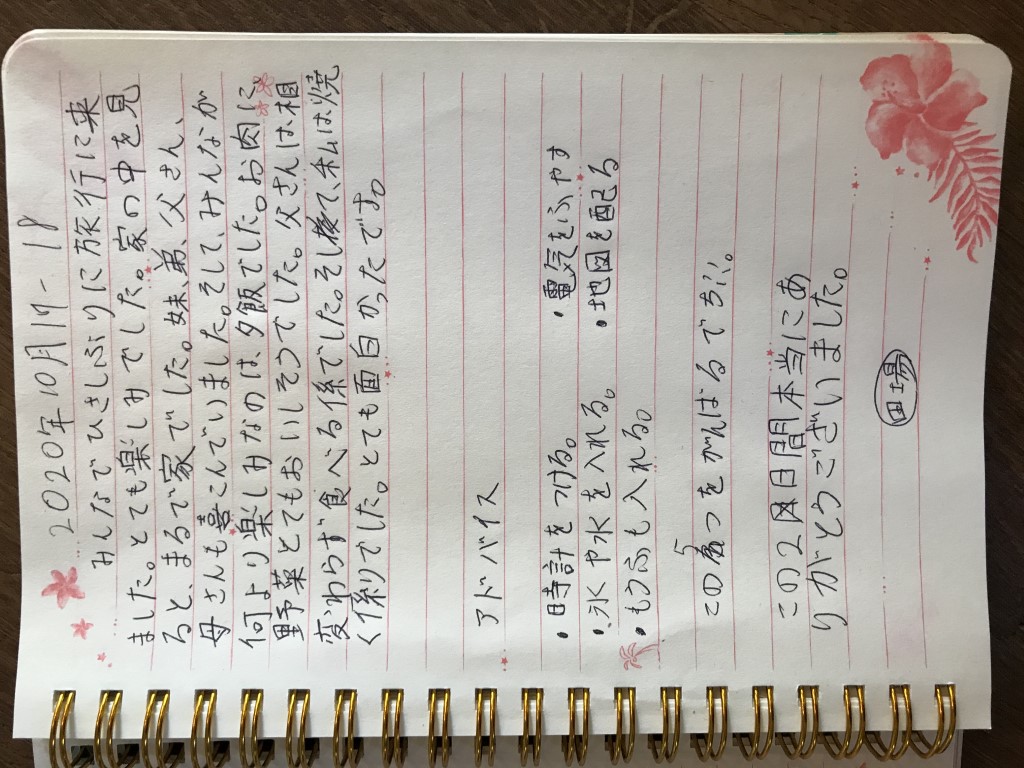 2020年10月17-18
みんなでひさしぶりに旅行に来
ました。とても楽しみでした。家の中を見
ると、まるで家でした。妹、弟、父さん、
母さんも喜こんでいました。そして、みんなが
何より楽しみなのは、夕飯でした。お肉に
野菜とてもおいしそうでした。父さんは相
変わらず食べる係でした。そして、私は焼
く係りでした。とても面白かったです。
アドバイス
・時計をつける。 ・電気をふやす
・氷や水を入れる。 ・地図を配る
・もうふも入れる。
この5つをがんばるでち!!。
この2日間本当にあ
りがとうございました。
田場